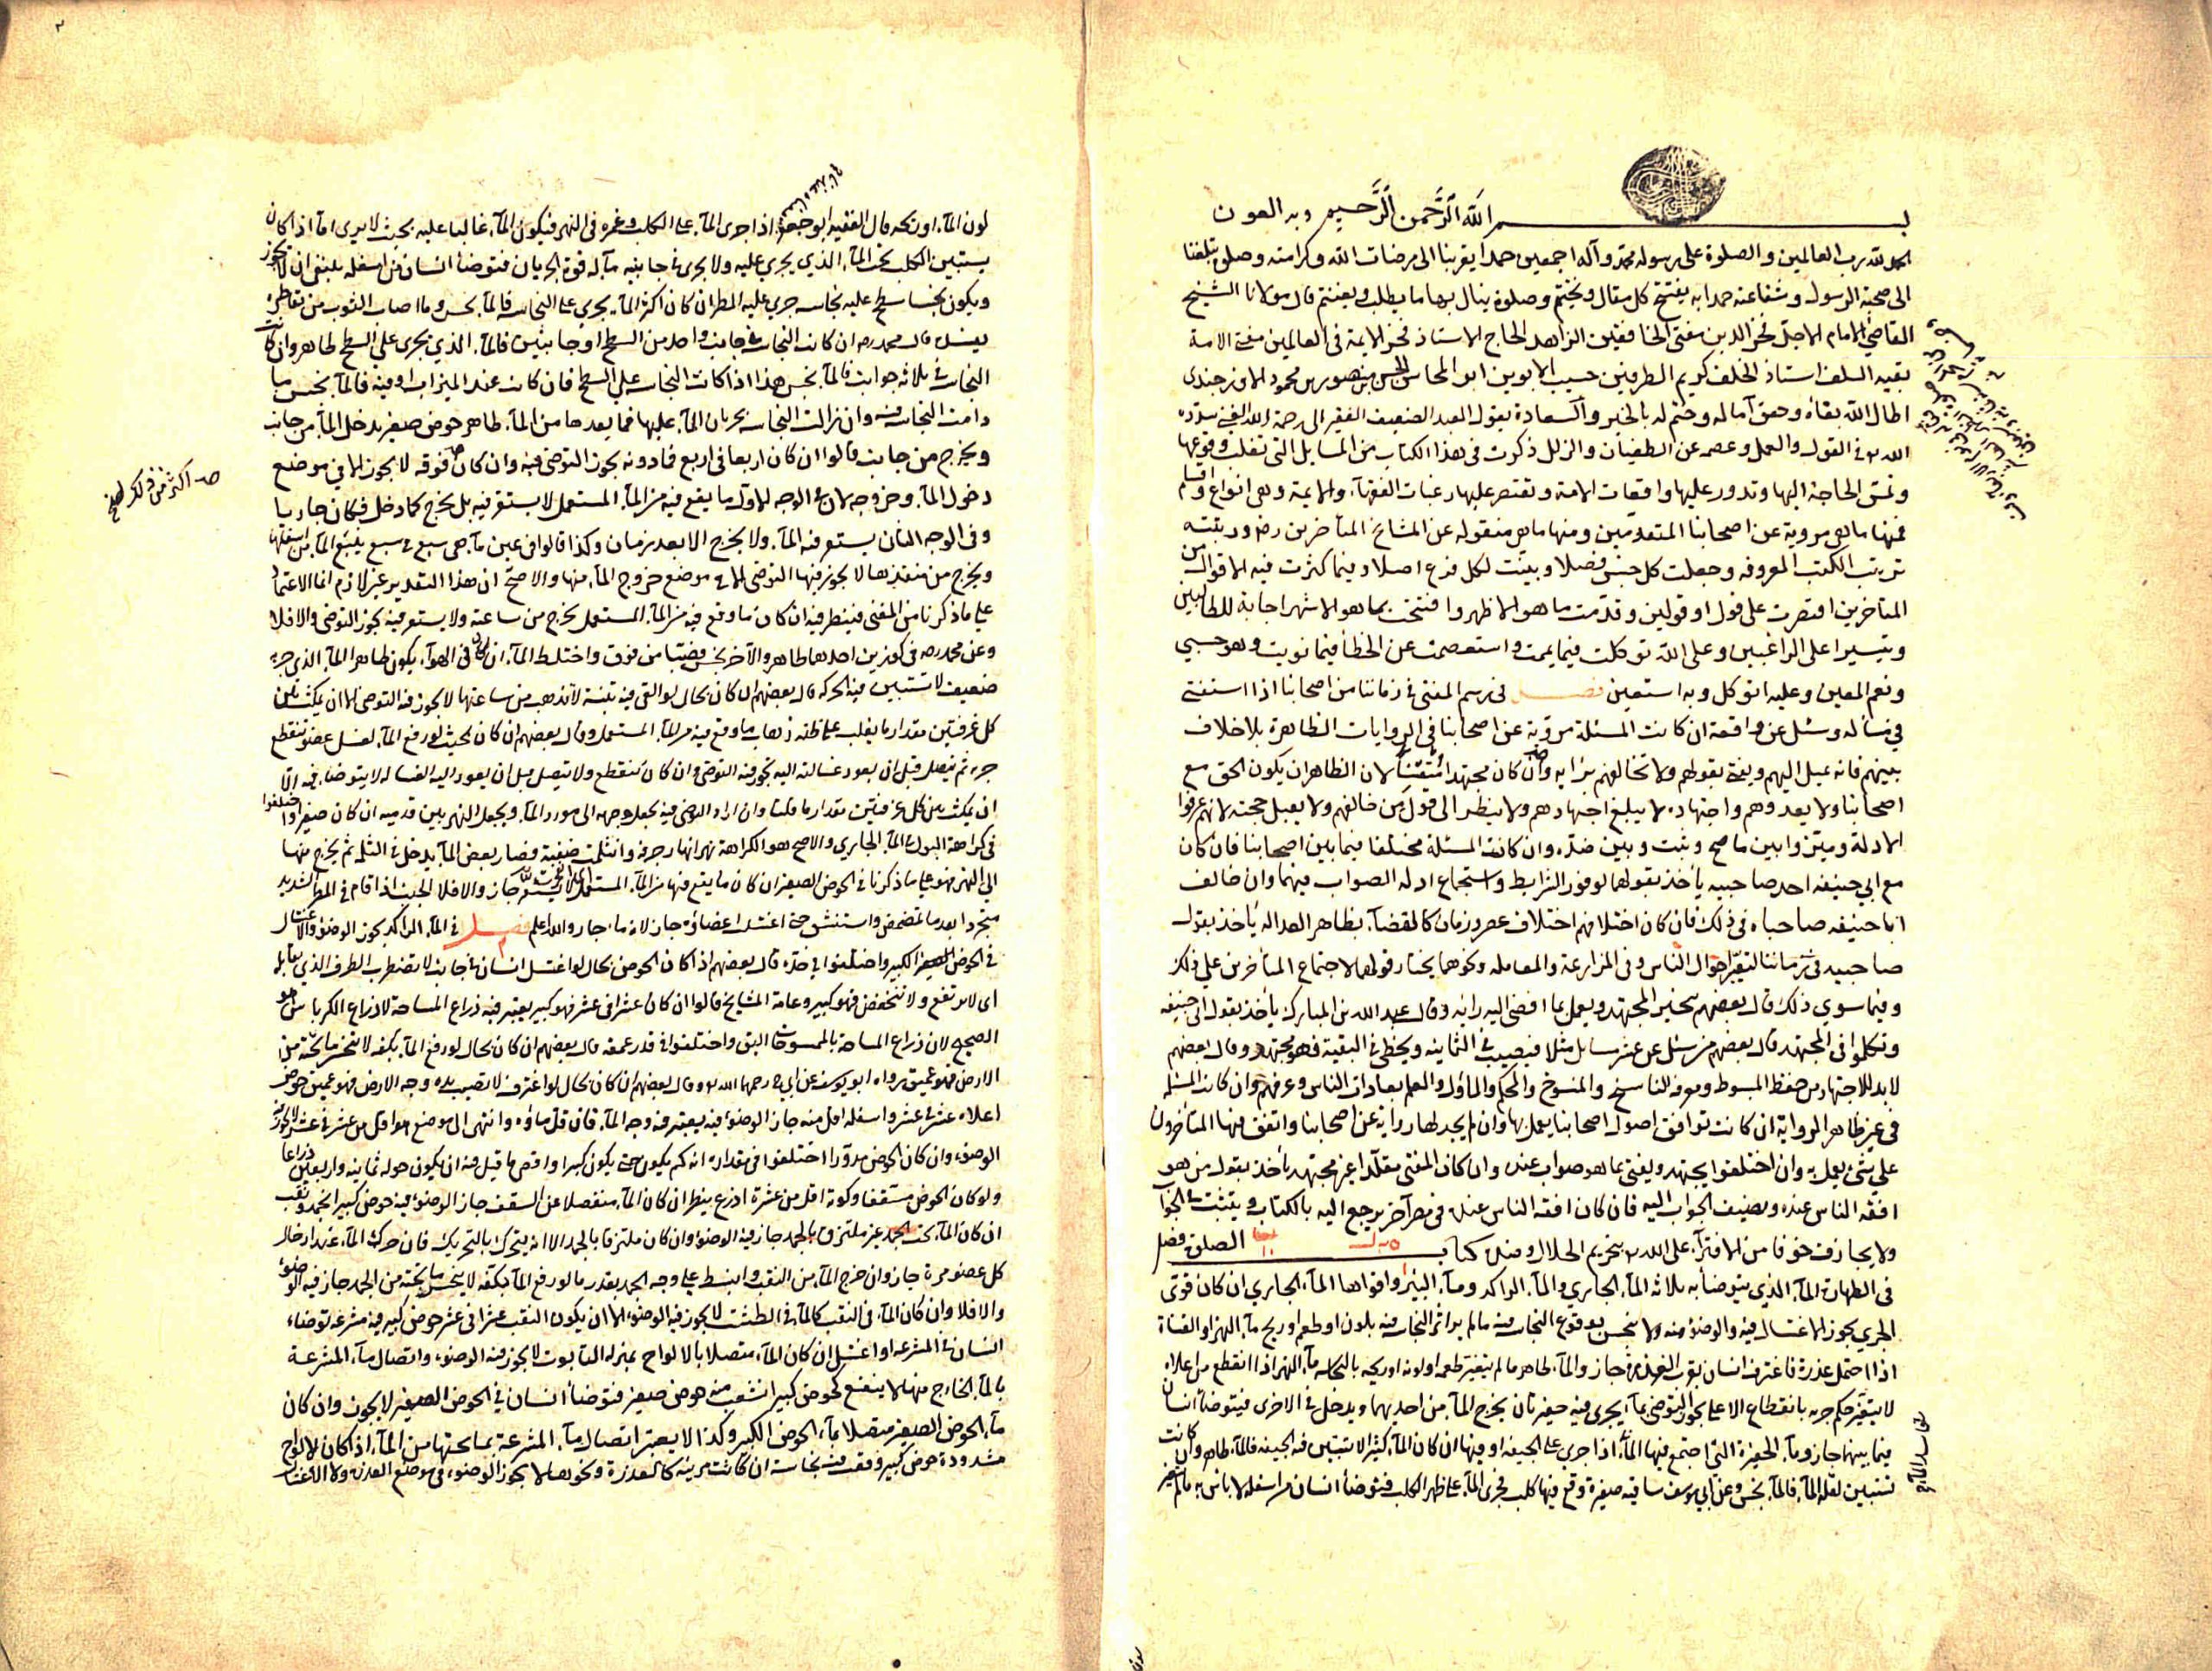 بسم الله الرحمن الرحيم وبه العون
الحمد لله رب العالمين والصلوة على رسوله محمد وآله اجمعين حمدا يقربنا الى مرضات الله وكرامته وصلوة تبلغنا
الى صحبة الرسول وشفاعته حمدا به يفتتح كل مقال ويختتم وصلوة ينال بها ما يطلب ويغتنم قال مولانا الشيخ
القاضي الامام الاجل فخر الدين مفتي الخافقين الزاهد الحاج الاستاذ فخر الايمة في العالمين مفتي الامة
بقية السلف استاذ الخلف كريم الطرفين حسيب الابوين ابو المحاسن الحسن بن منصور بن محمود الاوزجندي
اطال الله بقاءه وحقق آماله وختم له بالخير والسعادة يقول العبد الضعيف الفقير الى رحمة الله الغني سدده
الله في القول والعمل وعصمه عن الطغيان والزلل ذكرت في هذا الكتاب من المسايل التي تغلب وقوعها
وتمس الحاجة اليها وتدور عليها واقعات الامة وتقتصر عليها رغبات الفقهآء والايمة وهي انواع واقسام
فمنها ما هي مروية عن اصحابنا المتقدمين ومنها ما هي منقوله عن المشايخ المتأخرين رض ورتبته
ترتيب الكتب المعروفه وجعلت لكل جنس فصلا وبينت لكل فرع اصلا وفيما كثرت فيه الاقوال من
المتاخرين اقتصرت على قول او قولين وقدمت ما هو الاظهر وافتتحت بما هو الاشهر اجابة للطالبين
وتيسيرا على الراغبين وعلى الله توكلت فيما يممت واستعصمت عن الخطأ فيما نويت وهو حسبي
ونعم المعين وعليه اتوكل وبه استعين فصل في رسم المفتي في زماننا من اصحابنا اذا استفتي
في مسأله وسئل عن واقعة ان كانت المسئلة مروية عن اصحابنا في الروايات الظاهرة بلا خلاف
بينهم فانه يميل اليهم ويفتي بقولهم ولا يخالفهم برايه وان كان مجتهدا متقنا لان الظاهر ان يكون الحق مع
اصحابنا ولا يعدوهم واجتهاده لا يبلغ اجتهادهم ولا ينظر الى قول من خالفهم ولا يقبل حجته لانهم عرفوا
الادلة وميزوا بين ما صح وثبت وبين ضده وان كانت المسئلة مختلفا فيما بين اصحابنا فان كان
مع ابي حنيفه احد صاحبيه يأخذ بقولهما لوفور الشرايط واستجماع ادلة الصواب فيهما وان خالف
ابا حنيفه صاحباه في ذلك فان كان اختلافهم اختلاف عصر وزمان كالقضآء بظاهر العداله يأخذ بقول
صاحبيه في زماننا لتغير احوال الناس وفي المزارعة والمعامله ونحوهما يختار قولهما لاجتماع المتأخرين على ذلك
وفيما سوي ذلك قال بعضهم يتخير المجتهد ويعمل بما افضى اليه رايه وقال عبد الله بن المبارك يأخذ بقول ابي حنيفه
وتكلموا في المجتهد قال بعضهم من سئل عن عشر مسايل مثلا فيصيب في الثمانية ويخطي في البقية فهو مجتهد وقال بعضهم
لا بد للاجتهاد من حفظ المبسوط ومعرفة الناسخ والمنسوخ والمحكم والمأول والعلم بعادات الناس وعرفهم وان كانت المسئله
في غير ظاهر الرواية ان كانت توافق اصول اصحابنا يعمل بها وان لم يجد لها رواية عن اصحابنا واتفق فيها المتأخرون
على شئ يعمل به وان اختلفوا يجتهد ويفتي بما هو صواب عنده وان كان المفتي مقلدا غير مجتهد يأخذ بقول من هو
افقه الناس عنده ويضيف الجواب اليه فان كان افقه الناس عنده في مصر آخر يرجع اليه بالكتاب ويتثبت في الجواب
ولا يجازف خوفا من الافترآء على الله بتحريم الحلال وضده كتاب الصلوة فصل
في الطهارة المآء الذي يتوضأ به ثلاثة المآء الجاري والمآء الراكد ومآء البئر واقواها المآء الجاري ان كان قوي
الجري يجوز الاغتسال فيه والوضوء منه ولا ينجس بوقوع النجاسة فيه ما لم ير اثر النجاسة فيه بلون او طعم او ريح مآء النهر او القناة
اذا احتمل عذرة فاغترف انسان بقرب العذرة جاز والمآء طاهر ما لم يتغير طعمه او لونه او ريحه بالنجاسة مآء النهر اذا انقطع من اعلاه
لا يتغير حكم جريه بانقطاع الاعلى يجوز التوضي بمآء يجري فيه حفيرتان يخرج المآء من احديهما ويدخل في الاخرى فيتوضأ انسان
فيما بينهما جاز ومآء الحفيرة التي اجتمع فيها المآء اذا جري على الجيفة او فيها ان كان المآء كثيرا لا تتبين فيه الجيفه فالمآء طاهر وان كانت
تستبين لقلة المآء فالمآء نجس وعن ابي يوسف ساقيه صغيرة وقع فيها كلب فجري المآء على ظهر الكلب فتوضأ انسان من اسفله لا باس به ما لم يتغير
لون المآء او نكهه قال الفقيه ابو جعفر اذا جرى المآء على الكلب وغمره في النهر فيكون المآء غالبا عليه بحيث لا يرى اما اذا كان
يستبين الكلب تحت المآء الذي يجري عليه ولا يجرى في جانبيه مآء له قوة الجريان فتوضأ انسان من اسفله ينبغي ان لا يجوز
ويكون نجسا سطح عليه نجاسه جري عليه المطر ان كان اكثر المآء يجري على النجاسه فالمآء نجس وما اصاب الثوب من تقاطره
يغسل قال محمد رحه ان كانت النجاسة في جانب واحد من السطح او جانبين فالمآء الذي يجري على السطح طاهر وان كانت
النجاسة في ثلاثة جوانب فالمآء نجس هذا اذا كانت النجاسة على السطح فان كانت عند الميزاب او فيه فالمآء نجس ما
دامت النجاسة فيه وان زالت النجاسة بجريان المآء عليها فما بعدها من المآء طاهر حوض صغير يدخل المآء من جانب
ويخرج من جانب قالوا ان كان اربعا في اربع فما دونه يجوز التوضي فيه وان كان فوقه لا يجوز الا في موضع
دخول المآء وخروجه لان في الوجه الاول ما يقع فيه من المآء المستعمل لا يستقر فيه بل يخرج كما دخل فكان جاريا
وفي الوجه الثاني يستقر فيه المآء ولا يخرج الا بعد زمان وكذا قالوا في عين مآء هي سبع في سبع ينبع المآء من اسفلها
ويخرج من منفذها لا يجوز فيها التوضي الا في موضع خروج المآء منها والاصح ان هذا التقدير غير لازم انما الاعتماد
على ما ذكرنا من المعنى فينظر فيه ان كان ما وقع فيه من المآء المستعمل يخرج من ساعته ولا يستقر فيه يجوز التوضي والا فلا
وعن محمد رحه في كوزين احدهما طاهر والآخر نجس فصبا من فوق واختلط المآء ان في الهوآء يكون طاهرا المآء الذي جريه
ضعيف لا تستبين فيه الحركة قال بعضهم ان كان بحال لو القي فيه تبنة لا تذهب من ساعتها لا يجوز فيه التوضي الا ان يمكث بين
كل غرفتين مقدار ما يغلب على ظنه ذهاب ما وقع فيه من المآء المستعمل وقال بعضهم ان كان بحيث لو رفع المآء لغسل عضو تنقطع
جريه ثم يتصل قبل ان يعود غسالته اليه يجوز فيه التوضي وان كان ينقطع ولا يتصل قبل ان يعود اليه الغسالة لا يتوضأ فيه الا
ان يمكث بين كل غرفتين مقدار ما قلنا وان اراد التوضي فيه يجعل وجهه الى مورد المآء ويجعل النهر بين قدميه ان كان صغيرا واختلفوا
في كراهة البول في المآء الجاري والاصح هو الكراهة نهر انهار جرفه وانثلمت ضفته فصار بعض المآء يدخل في الثلمه ثم يخرج منها
الى النهر فهو على ما ذكرنا في الحوض الصغير ان كان ما يقع فيها من المآء المستعمل جاز والا فلا الجنب اذا قام في المطر الشديد
متجردا بعد ما تمضمض واستنشق حتى اغتسلت اعضاؤه جاز لانه مآء جار والله اعلم فصل في المآء الراكد يجوز الوضوء والاغتسال
في الحوض الكبير واختلفوا في حده قال بعضهم اذا كان الحوض بحال لو اغتسل انسان في جانب لا تضطرب الطرف الذي يقابله
اى لا يرتفع ولا ينخفض فهو كبير وعامة المشايخ قالوا ان كان عشرا في عشر فهو كبير يعتبر فيه ذراع المساحة لا ذراع الكرباس هو
الصحيح لان ذراع المساحة بالممسوحات اليق واختلفوا في قدر عمقه قال بعضهم ان كان بحال لو رفع المآء بكفه لا ينحسر ما تحته من
الارض فهو عميق رواه ابو يوسف عن ابي ح رحمهما الله وقال بعضهم ان كان بحال لو اغترف لا تصيب يده وجه الارض فهو عميق حوض
اعلاه عشر في عشر واسفله اقل منه جاز الوضوء فيه يعتبر فيه وجه المآء فان قل ماؤه وانتهى الى موضع هو اقل من عشر في عشر لا يجوز فيه
الوضوء وان كان الحوض مدورا اختلفوا في مقداره انه كم يكون حتى يكون كبيرا واقصى ما قيل فيه ان يكون حوله ثمانية واربعين ذراعا
ولو كان الحوض مسقفا وكوته اقل من عشرة اذرع ينظر ان كان المآء منفصلا عن السقف جاز الوضوء فيه حوض كبير انجمد ونقب
ان كان المآء تحت الجمد غير ملتزق بالجمد جاز فيه الوضوء وان كان ملتزقا بالجمد الا انه يتحرك بالتحريك فان حرك المآء عند ادخال
كل عضو مرة جاز وان خرج المآء من النقب وانبسط على وجه الجمد بقدر ما لو رفع المآء بكفه لا ينحسر ما تحته من الجمد جاز فيه الوضوء
والا فلا وان كان المآء في النقب كالمآء في الطشت لا يجوز فيه الوضوء الا ان يكون النقب عشرا في عشر حوض كبير فيه مشرعه توضاء
انسان في المشرعه او اغتسل ان كان المآء متصلا بالالواح بمنزلة التابوت لا يجوز فيه الوضوء واتصال مآء المشرعة
بالمآء الخارج منها لا ينفع كحوض كبير انشعب منه حوض صغير فتوضأ انسان في الحوض الصغير لا يجوز وان كان
مآء الحوض الصغير متصلا بمآء الحوض الكبير وكذا لا يعتبر اتصال مآء المشرعة بما تحتها من المآء اذا كان الالواح
مشدودة حوض كبير وقعت فيه نجاسة ان كانت مرئية كالعذرة ونحوها لا يجوز الوضوء في موضع العذرة ولا الاغتسال